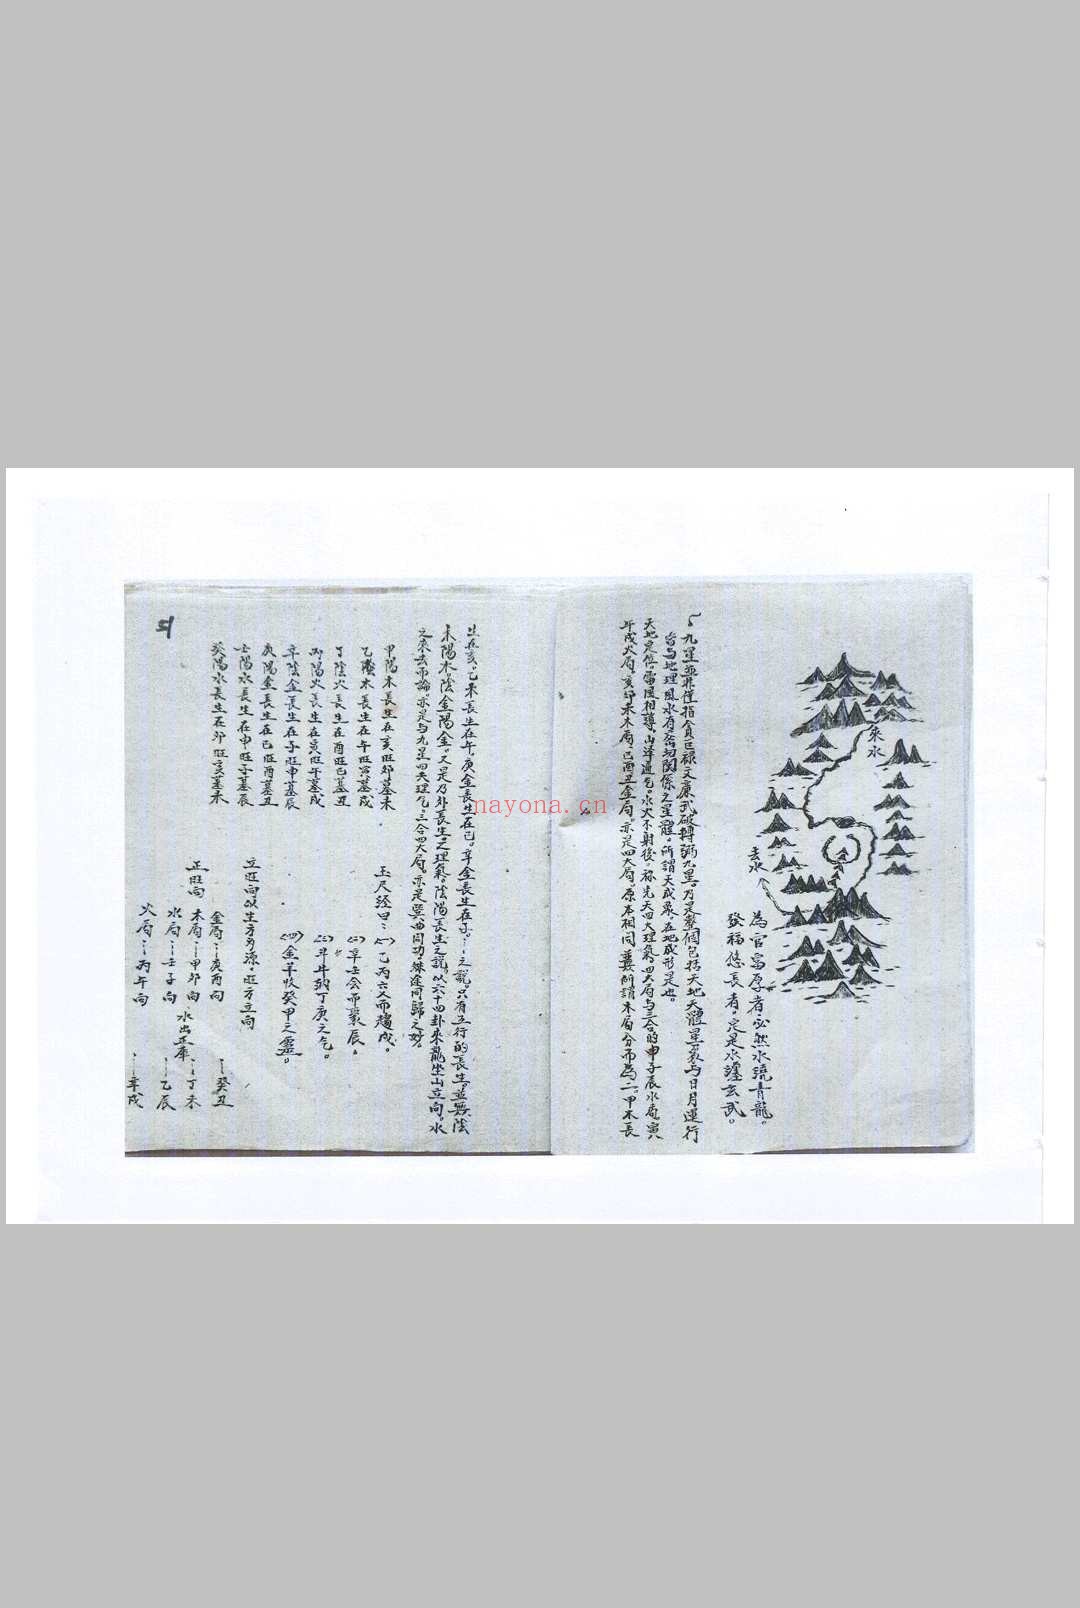 來水
去水
為官富厚者必然水繞青龍。
發福悠長者。定是水纏玄武。
九星並非僅指貪巨祿文廉武破輔弼九星。乃是整個包括天地天體星象与日月運行
皆与地理風水有密切関係之星體。所謂天成象。在地成形是也。
天地定位。雷風相薄。山澤通气。水火不射後。称先天四大理氣。四大局与三合的申子辰水局。寅
午戌火局。亥卯未木局。巳酉丑金局。亦是四大局。原本相同 所謂木局分而為二。甲木長
生在亥。乙木長生在午。庚金長生在巳。辛金長生在子。之説。只有五行的長生。並無陰
木陽木陰金陽金。又是乃外長生之理氣。陰陽長生之説。以六十四卦來龍坐山立向。水
之來去而論。亦是与九星四大理气。三合四大局。亦是異曲同功。殊途同歸之妙。
甲陽木長生在亥旺卯墓未
乙陰木長生在午旺寅墓戌
丁陰火長生在酉旺巳墓丑
丙陽火長生在寅旺午墓戌
辛陰金長生在子旺申墓辰
庚陽金長生在巳旺酉墓丑
壬陽水長生在申旺子墓辰
癸陽水長生在卯旺亥墓未
玉尺经曰：(一)乙丙交而趨戍。
(二)辛壬会而聚辰。
(三)斗牛納丁庚之气。
(四)金羊收癸甲之靈。
立旺向以生方為源。旺方立向
正旺向
金局：庚酉向
木局：甲卯向
水局：壬子向
火局：丙午向
水出正庫
癸丑
丁未
乙辰
辛戌
nayona.cn